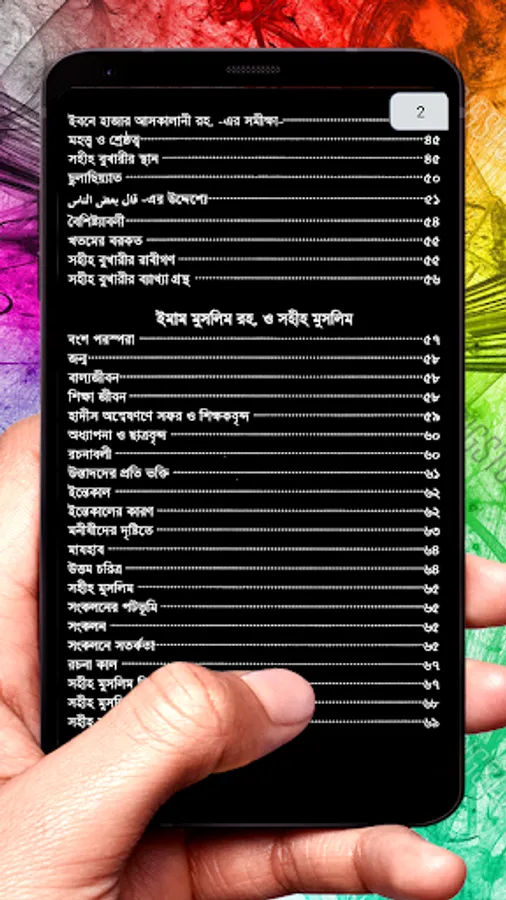 2
ইবনে হাজার আসকালানী রহ. -এর সমীক্ষা
মহত্ব ও শ্রেষ্ঠত্ব ৪৫
সহীহ বুখারীর স্থান ৪৫
ছুলাছিয়্যাত ৫০
قال بعض الناس -এর উদ্দেশ্যে ৫১
বৈশিষ্ট্যাবলী ৫৪
খতমের বরকত ৫৫
সহীহ বুখারীর রাবীগণ ৫৫
সহীহ বুখারীর ব্যাখ্যা গ্রন্থ ৫৬
ইমাম মুসলিম রহ. ও সহীহ মুসলিম
বংশ পরম্পরা ৫৭
জন্ম ৫৮
বাল্যজীবন ৫৮
শিক্ষা জীবন ৫৮
হাদীস অন্বেষণে সফর ও শিক্ষকবৃন্দ ৫৯
অধ্যাপনা ও ছাত্রবৃন্দ ৬০
রচনাবলী ৬০
উস্তাদদের প্রতি ভক্তি ৬১
ইন্তেকাল ৬২
ইন্তেকালের কারণ ৬২
মনীষীদের দৃষ্টিতে ৬৩
মাযহাব ৬৪
উত্তম চরিত্র ৬৪
সহীহ মুসলিম ৬৫
সংকলনের পটভূমি ৬৫
সংকলন ৬৫
সংকলনে সতর্কতা ৬৫
রচনা কাল ৬৭
সহীহ মুসলিম ৬৭
সহীহ ৬৮
সহীহ ৬৯